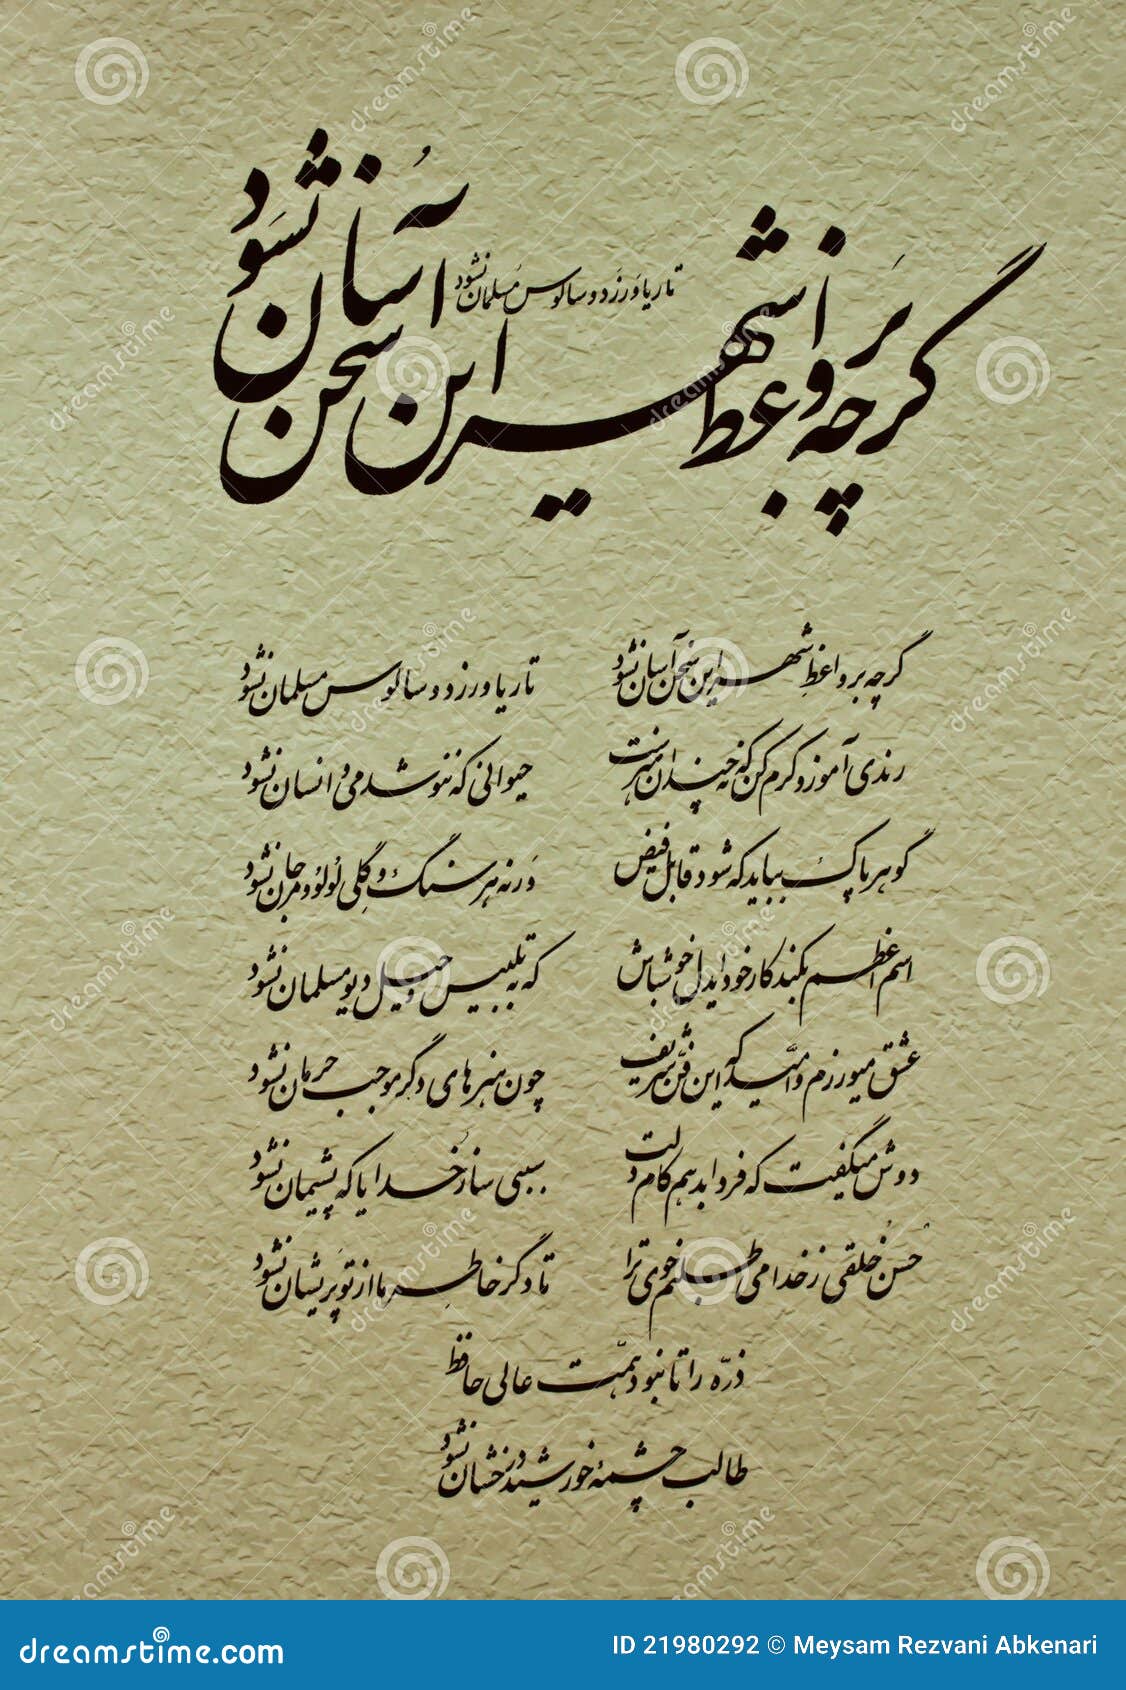 گرچه بر واعظ شهر این سخن آسان نشود
تا ریا ورزد و سالوس مسلمان نشود
گرچه بر واعظ شهر این سخن آسان نشود تا ریا ورزد و سالوس مسلمان نشود
رندی آموز و کرم کن که نه چندان هنرست حیوانی که ننوشد می و انسان نشود
گوهر پاک بباید که شود قابل فیض ورنه هر سنگ و گلی لؤلؤ و مرجان نشود
اسم اعظم بکند کار خود ای دل خوش باش که به تلبیس و حیل دیو مسلمان نشود
عشق میورزم و امید که این فن شریف چون هنرهای دگر موجب حرمان نشود
دوش میگفت که فردا بدهم کام دلت سببی ساز خدایا که پشیمان نشود
حُسن خُلقی ز خدا می طلبم خوی ترا تا دگر خاطر ما از تو پریشان نشود
ذرّه را تا نبود همّت عالی حافظ
طالب چشمهٔ خورشید درخشان نشود
dreamstime.com
ID 21980292 © Meysam Rezvani Abkenari